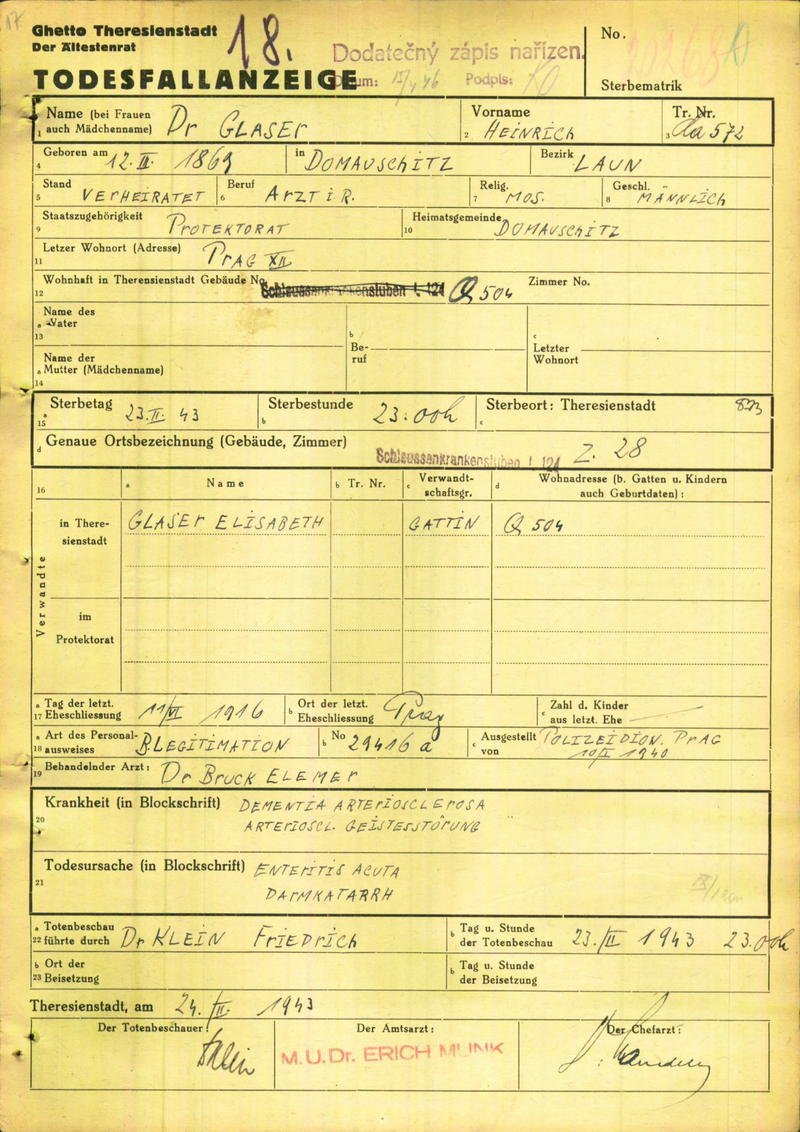 Ghetto Theresienstadt
Der Ältestenrat
18.
Dodatečný zápis nařízen.
Podpis:
No.
TODESFALLANZEIGE
Sterbematrik
Name (bei Frauen
1 auch Mädchenname) Dr GLASER
Vorname
2 HEINRICH
Tr. Nr.
3 572
Geboren am
4 12. II. 1869
in DOMAUSCHITZ
Bezirk LAUN
Stand
5 VERHEIRATET
Beruf
6 ARZT i R.
Relig.
7 MOS.
Geschl.
8 MÄNNLICH
Staatszugehörigkeit
9 PROTEKTORAT
Heimatsgemeinde
10 DOMAUSCHITZ
Letzer Wohnort (Adresse)
11 PRAG XII
Wohnhaft in Theresienstadt Gebäude No.
12 Schleussenkrankenstuben L 124 Q 504
Zimmer No.
Name des
a Vater
13
b
Be-
ruf
c
Letzter
Wohnort
Name der
a Mutter (Mädchenname)
14
a Sterbetag
15 23. II. 43
b Sterbestunde 23.00h
c Sterbeort: Theresienstadt
d Genaue Ortsbezeichnung (Gebäude, Zimmer) Schleussenkrankenstuben L 124 Z. 28
16
a Name
b Tr. Nr.
c Verwandt-
schaftsgr.
d Wohnadresse (b. Gatten u. Kindern
auch Geburtdaten):
Verwandte
in There-
sienstadt
GLASER ELISABETH
GATTIN
Q 504
im
Protektorat
a Tag der letzt.
17 Eheschliessung 11/VI 1916
b Ort der letzt.
Eheschliessung Prag
c Zahl d. Kinder
aus letzt. Ehe
a Art des Personal-
18 ausweises BLEGITIMATION
b No 29416 a
c Ausgestellt
von POLIZEIDION. PRAG
1940
19 Behandelnder Arzt: Dr BRUCK ELEMER
20 Krankheit (in Blockschrift) DEMENTIA ARTERIOSCLEROSA
ARTERIOSCL. GEISTESSTÖRUNG
21 Todesursache (in Blockschrift) ENTERITIS ACUTA
DARMKATARRH
a Totenbeschau
22 führte durch Dr KLEIN FRIEDRICH
b Tag u. Stunde
der Totenbeschau 23./II 1943 23.00h
b Ort der
23 Beisetzung
b Tag u. Stunde
der Beisetzung
Theresienstadt, am 24./II. 1943
Der Totenbeschauer:
Klein
Der Amtsarzt:
M.U.Dr. ERICH MUNK
Der Chefarzt: